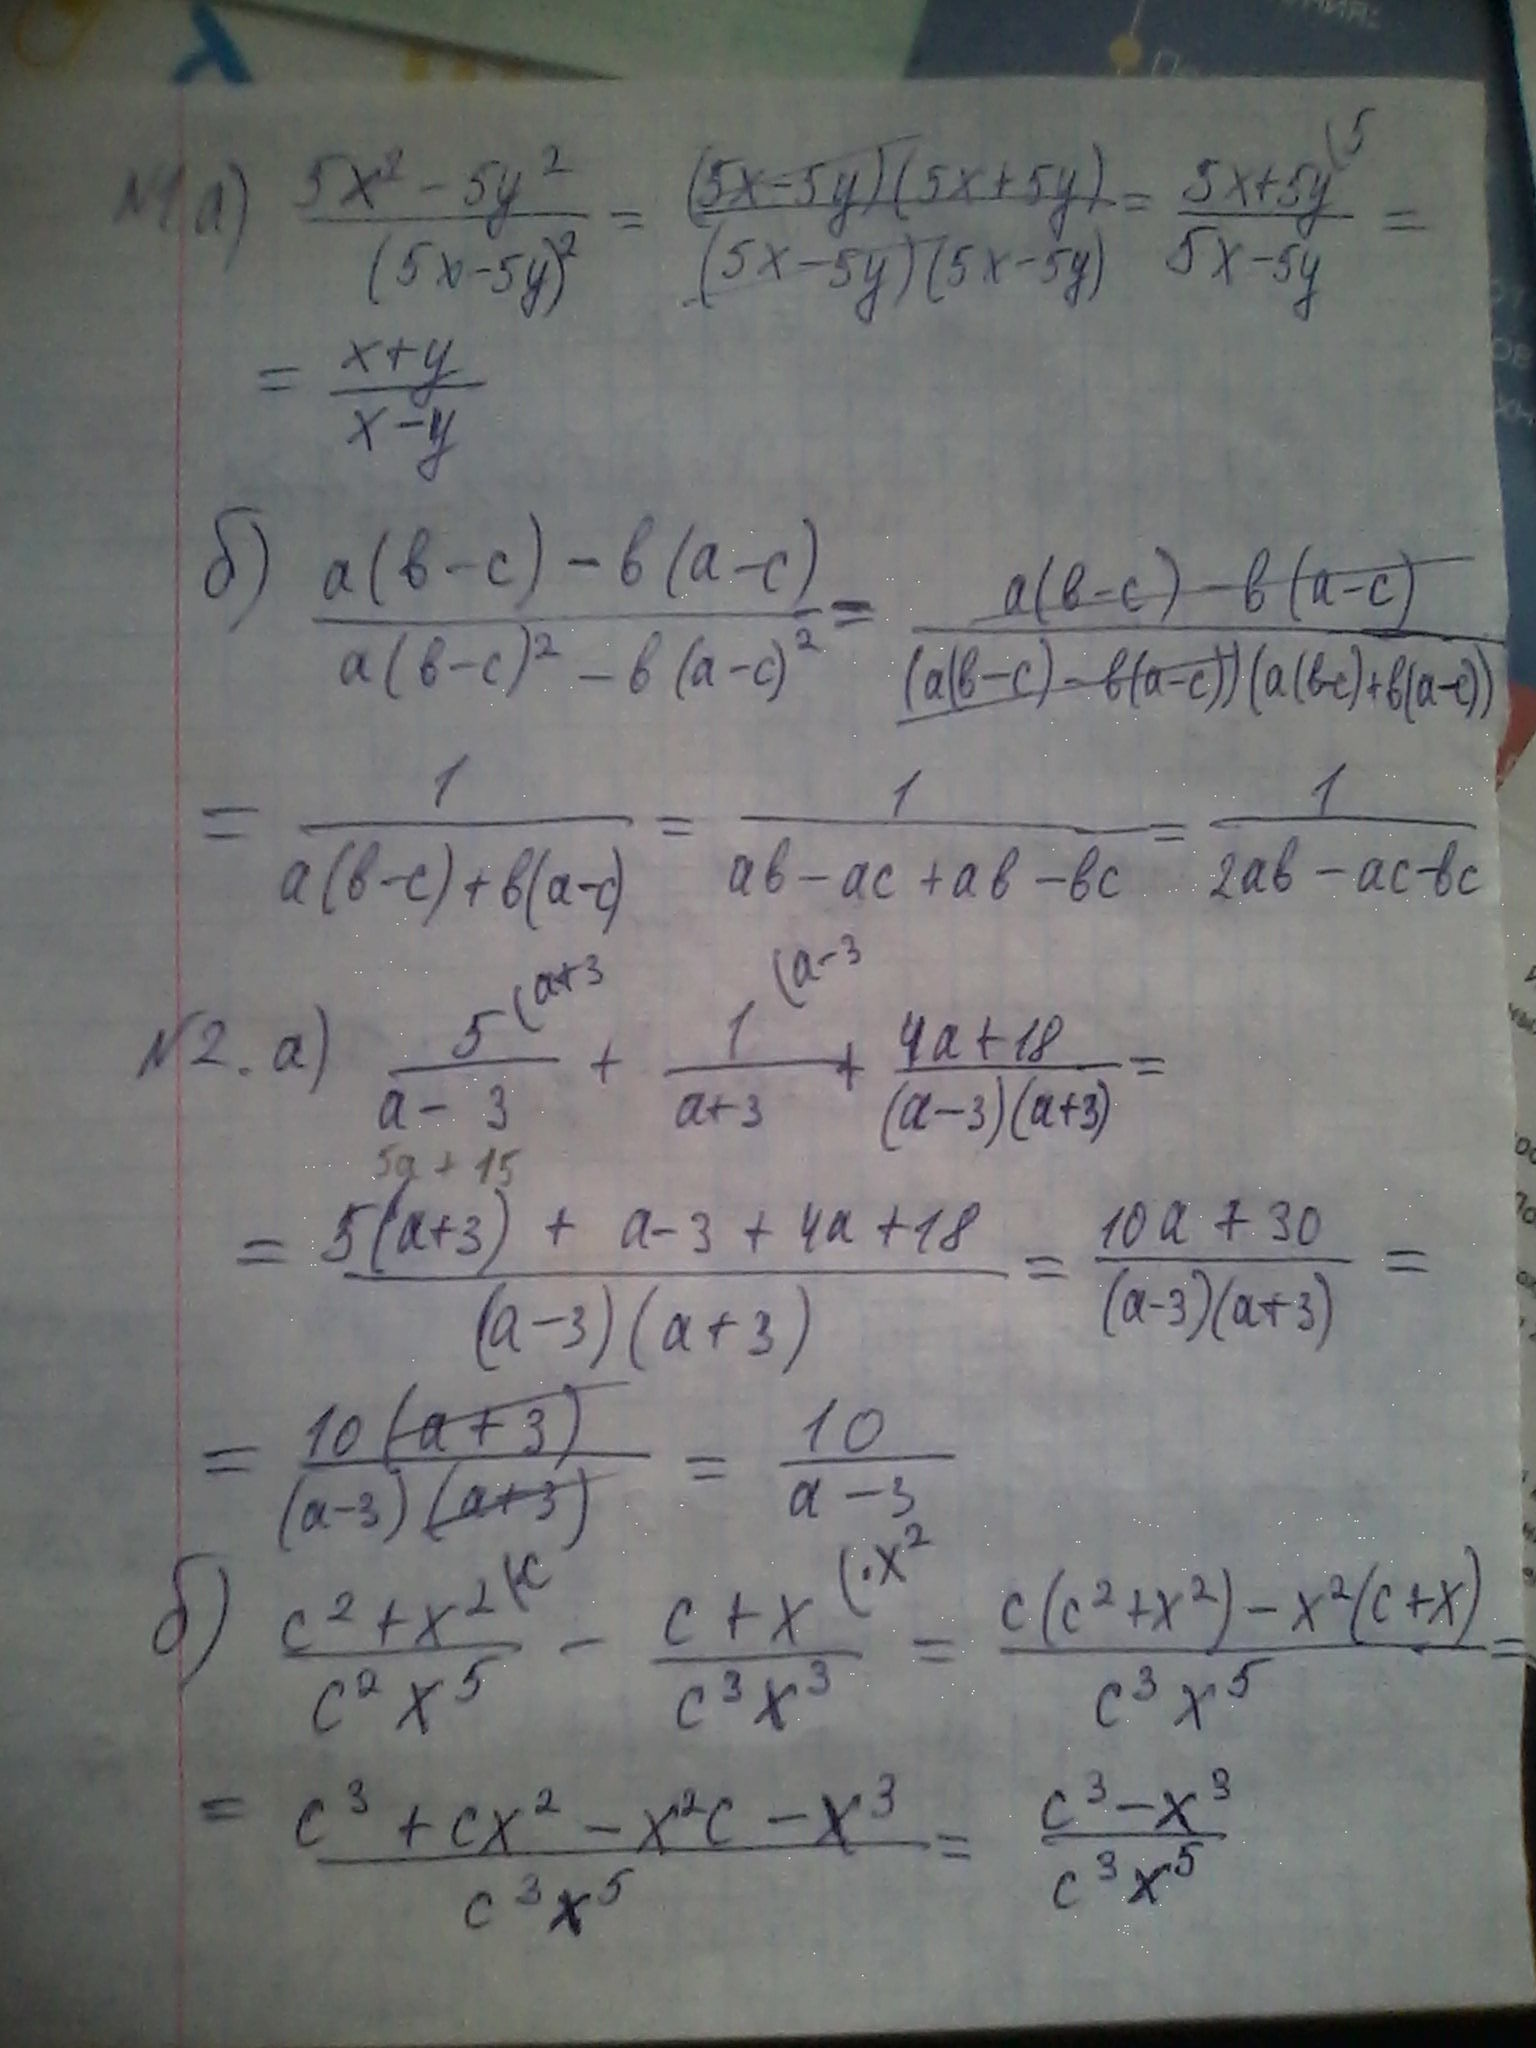 №1 а) (5x² - 5y²)/(5x-5y)² = (5x-5y)(5x+5y)/(5x-5y)(5x-5y) = (5x+5y)/(5x-5y) (5 =
= (x+y)/(x-y)
б) (a(в-c) - в(a-c))/(a(в-c)² - в(a-c)²) = (a(в-c) - в(a-c))/((a(в-c) - в(a-c))(a(в-c)+в(a-c)))
= 1/(a(в-c)+в(a-c)) = 1/(aв-ac+aв-вc) = 1/(2aв-ac-вc)
№2. а) 5/(a-3) (a+3 + 1/(a+3) (a-3 + (4a+18)/(a-3)(a+3) =
5a + 15
= (5(a+3) + a-3 + 4a+18)/(a-3)(a+3) = (10a+30)/(a-3)(a+3) =
= 10(a+3)/(a-3)(a+3) = 10/(a-3)
б) (c²+x²)/(c²x⁵) (·c - (c+x)/(c³x³) (·x² = (c(c²+x²)-x²(c+x))/(c³x⁵) =
= (c³+cx²-x²c-x³)/(c³x⁵) = (c³-x³)/(c³x⁵)